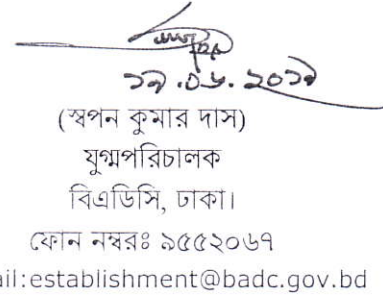 ১৯.০৬.২০১৯
(স্বপন কুমার দাস)
যুগ্মপরিচালক
বিএডিসি, ঢাকা।
ফোন নম্বরঃ ৯৫৫২০৬৭
ail:establishment@badc.gov.bd